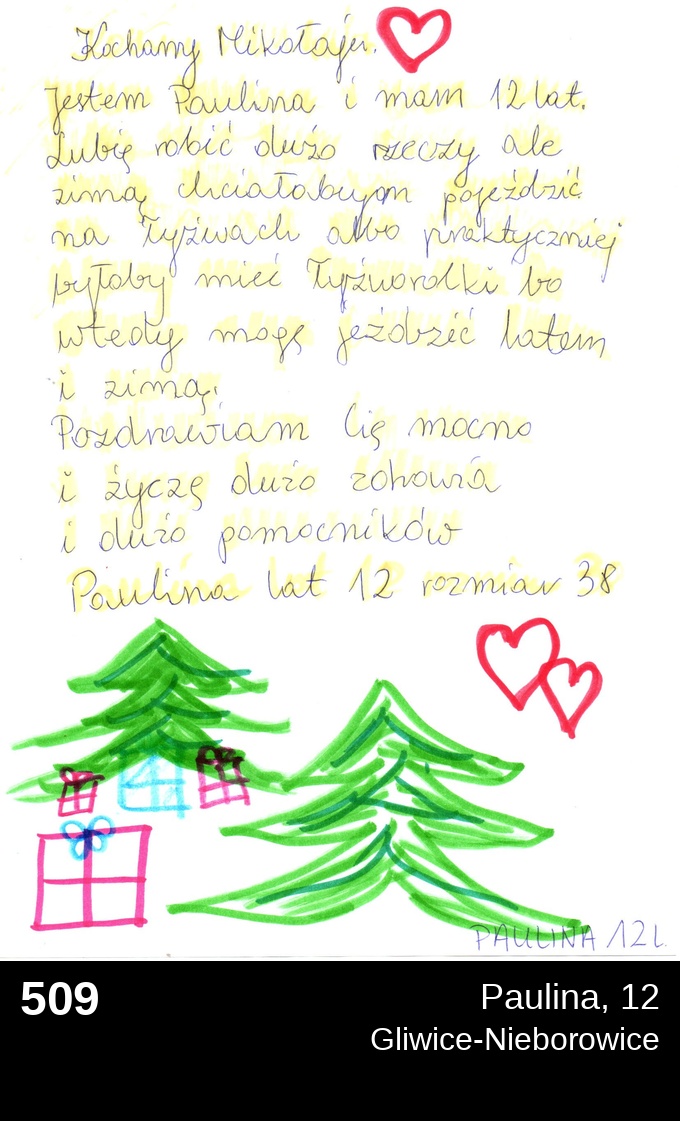 Kochany Mikołaju.
Jestem Paulina i mam 12 lat.
Lubię robić dużo rzeczy ale
zimą chciałabym pojeździć
na łyżwach albo praktyczniej
byłoby mieć łyżworolki bo
wtedy mogę jeździć latem
i zimą.
Pozdrawiam Cię mocno
i życzę dużo zdrowia
i dużo pomocników
Paulina lat 12 rozmiar 38
PAULINA 12 L.
509
Paulina, 12
Gliwice-Nieborowice